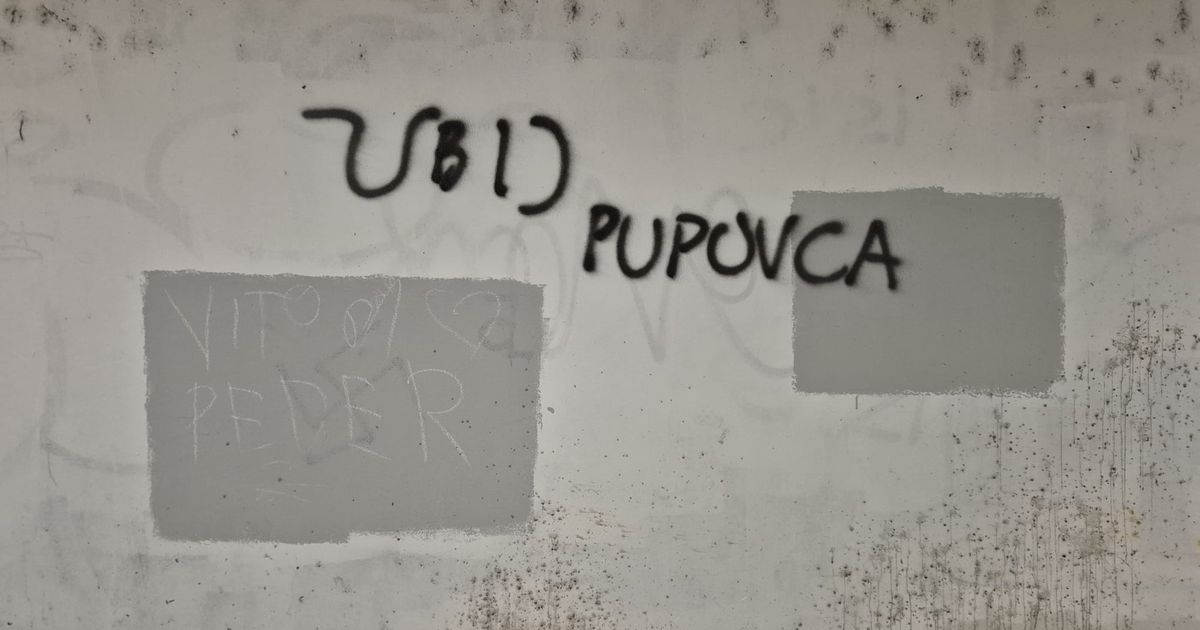 UBIJ
PUPOVCA
VITO
PEDER